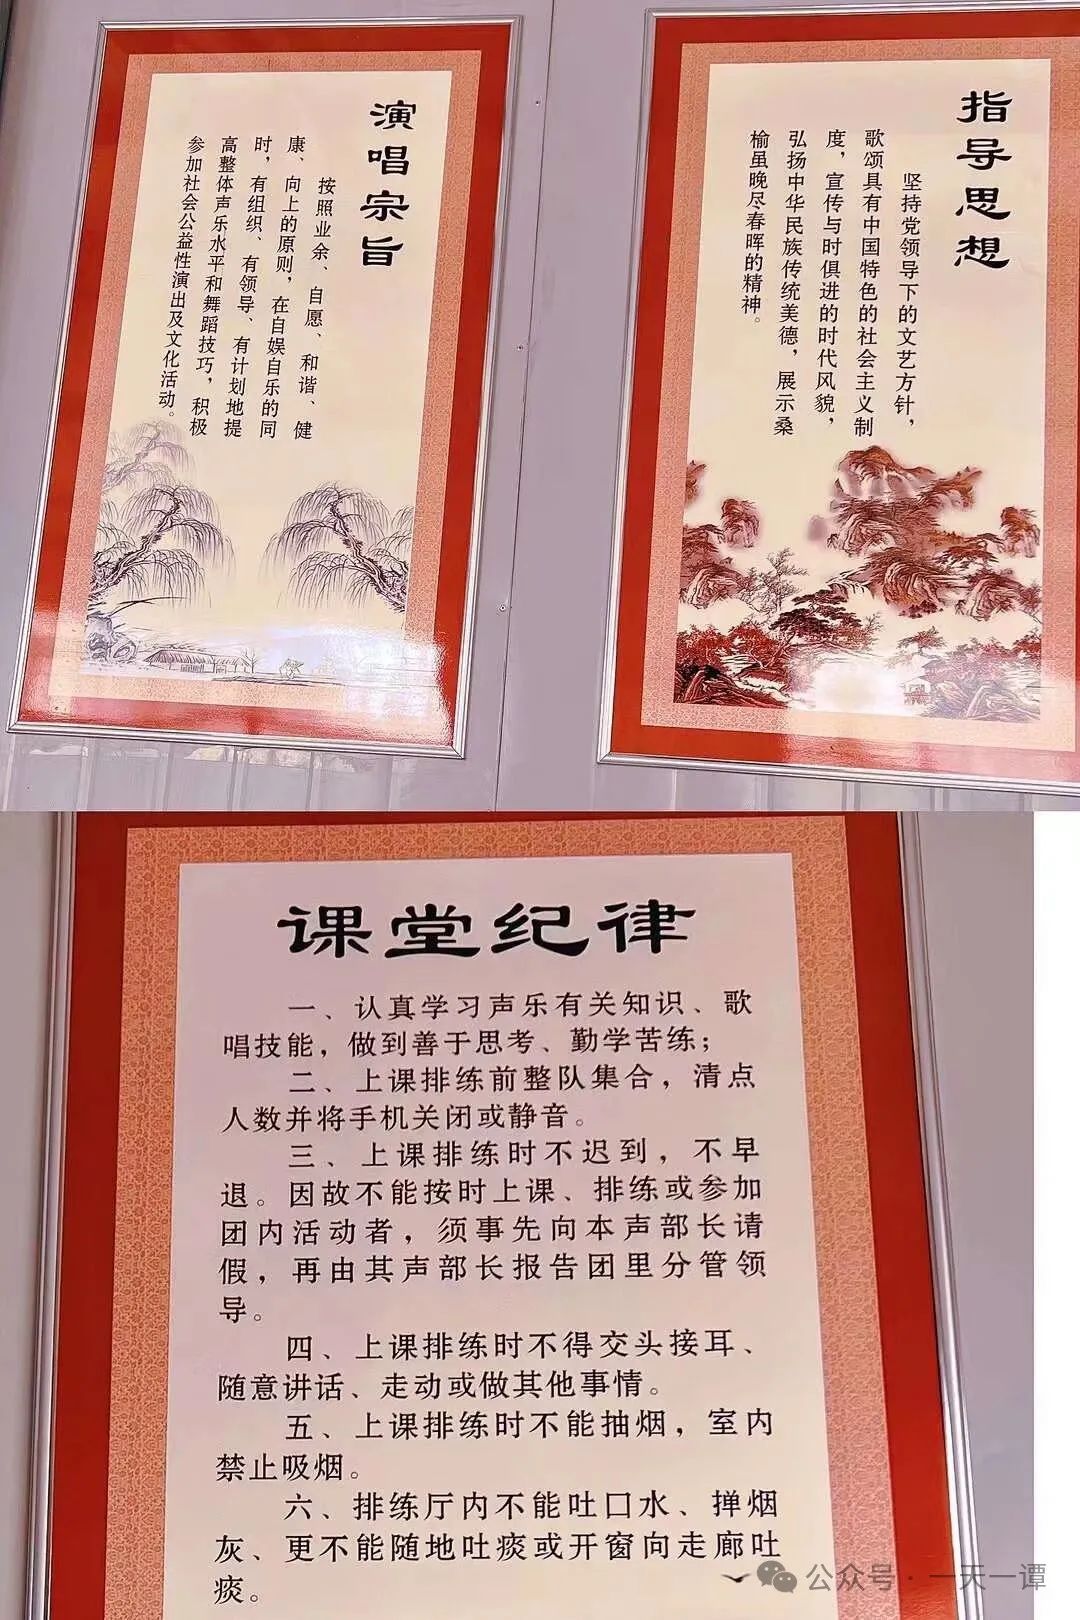 演唱宗旨
按照业余、自愿、和谐、健
康、向上的原则，在自娱自乐的同
时，有组织、有领导、有计划地提
高整体声乐水平和舞蹈技巧，积极
参加社会公益性演出及文化活动。
指导思想
坚持党领导下的文艺方针，
歌颂具有中国特色的社会主义制
度，宣传与时俱进的时代风貌，
弘扬中华民族传统美德，展示桑
榆虽晚尽春晖的精神。
课堂纪律
一、认真学习声乐有关知识、歌
唱技能，做到善于思考、勤学苦练；
二、上课排练前整队集合，清点
人数并将手机关闭或静音。
三、上课排练时不迟到，不早
退。因故不能按时上课、排练或参加
团内活动者，须事先向本声部长请
假，再由其声部长报告团里分管领
导。
四、上课排练时不得交头接耳、
随意讲话、走动或做其他事情。
五、上课排练时不能抽烟，室内
禁止吸烟。
六、排练厅内不能吐口水、掸烟
灰、更不能随地吐痰或开窗向走廊吐
痰。
公众号·一天一谭